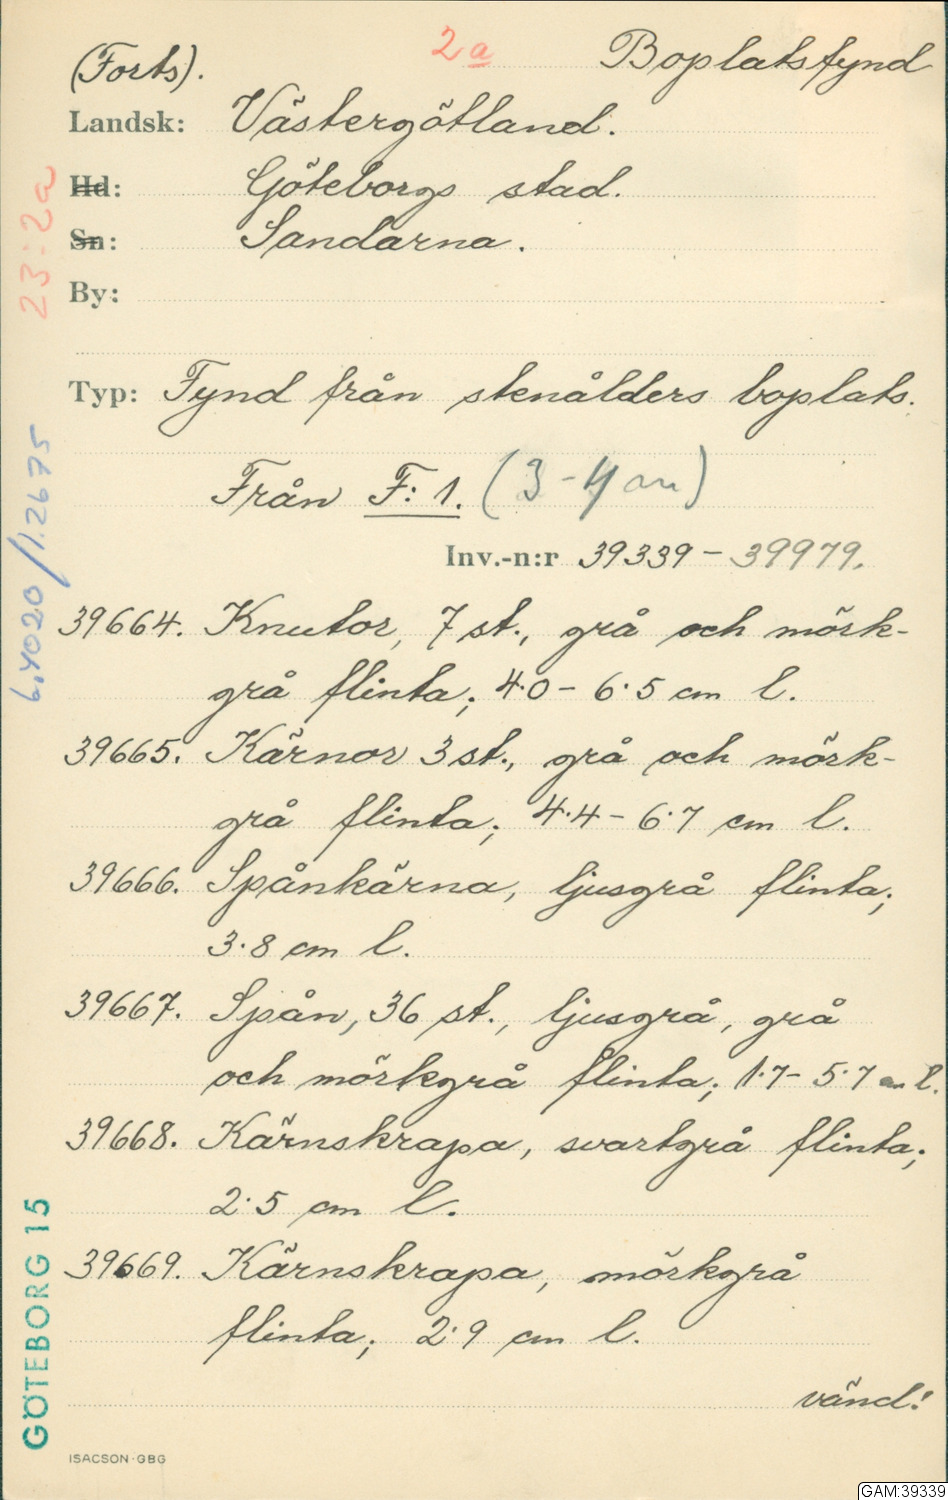 (Forts).
2a
Boplatsfynd
Landsk: Västergötland.
Hd: Göteborgs stad.
Sn: Sandarna.
By:
Typ: Fynd från stenålders boplats.
Från F: 1. (3-4 )
Inv.-n:r 39339 - 39979.
39664. Knutor, 7 st., grå och mörk-
grå flinta; 4.0 - 6.5 cm l.
39665. Kärnor 3 st., grå och mörk-
grå flinta; 4.4 - 6.7 cm l.
39666. Spånkärna, ljusgrå flinta;
3.8 cm l.
39667. Spån, 36 st., ljusgrå, grå
och mörkgrå flinta; 1.7 - 5.7 cm l.
39668. Kärnskrapa, svartgrå flinta;
2.5 cm l.
39669. Kärnskrapa, mörkgrå
flinta; 2.9 cm l.
vänd!
23:2a
6,4020/1.2675
GÖTEBORG 15
ISACSON·GBG
GAM:39339